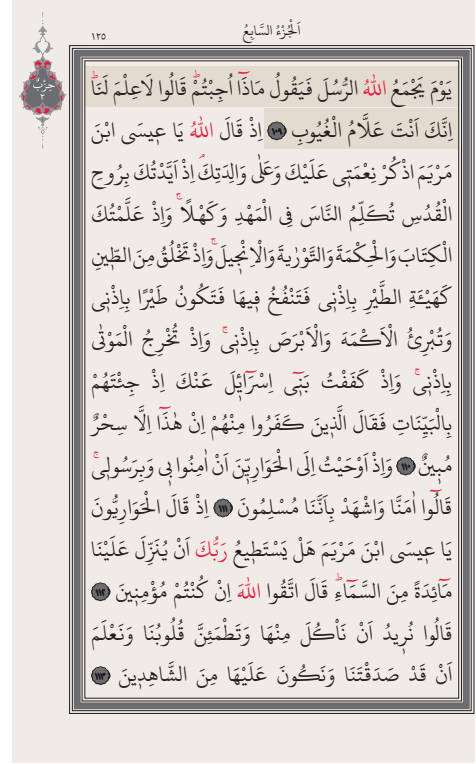 اَلْجُزْءُ السَّابِعُ
١٢٥
حزب
يَوْمَ يَجْمَعُ اللّٰهُ الرُّسُلَ فَيَقُولُ مَاذَٓا اُجِبْتُمْۜ قَالُوا لَاعِلْمَ لَنَاۜ
اِنَّكَ اَنْتَ عَلَّامُ الْغُيُوبِ ﴿١٠٩﴾ اِذْ قَالَ اللّٰهُ يَا ع۪يسَى ابْنَ
مَرْيَمَ اذْكُرْ نِعْمَت۪ي عَلَيْكَ وَعَلٰى وَالِدَتِكَۢ اِذْ اَيَّدْتُكَ بِرُوحِ
الْقُدُسِ تُكَلِّمُ النَّاسَ فِي الْمَهْدِ وَكَهْلًاۚ وَاِذْ عَلَّمْتُكَ
الْكِتَابَ وَالْحِكْمَةَ وَالتَّوْرٰيةَ وَالْاِنْج۪يلَۚ وَاِذْ تَخْلُقُ مِنَ الطّ۪ينِ
كَهَيْـَٔةِ الطَّيْرِ بِاِذْن۪ي فَتَنْفُخُ ف۪يهَا فَتَكُونُ طَيْرًا بِاِذْن۪ي
وَتُبْرِئُ الْاَكْمَهَ وَالْاَبْرَصَ بِاِذْن۪يۚ وَاِذْ تُخْرِجُ الْمَوْتٰى
بِاِذْن۪يۚ وَاِذْ كَفَفْتُ بَن۪ٓي اِسْرَٓائ۪لَ عَنْكَ اِذْ جِئْتَهُمْ
بِالْبَيِّنَاتِ فَقَالَ الَّذ۪ينَ كَفَرُوا مِنْهُمْ اِنْ هٰذَٓا اِلَّا سِحْرٌ
مُب۪ينٌ ﴿١١٠﴾ وَاِذْ اَوْحَيْتُ اِلَى الْحَوَارِيّ۪نَ اَنْ اٰمِنُوا ب۪ي وَبِرَسُول۪يۚ
قَالُٓوا اٰمَنَّا وَاشْهَدْ بِاَنَّنَا مُسْلِمُونَ ﴿١١١﴾ اِذْ قَالَ الْحَوَارِيُّونَ
يَا ع۪يسَى ابْنَ مَرْيَمَ هَلْ يَسْتَط۪يعُ رَبُّكَ اَنْ يُنَزِّلَ عَلَيْنَا
مَٓائِدَةً مِنَ السَّمَٓاءِۜ قَالَ اتَّقُوا اللّٰهَ اِنْ كُنْتُمْ مُؤْمِن۪ينَ ﴿١١٢﴾
قَالُوا نُر۪يدُ اَنْ نَأْكُلَ مِنْهَا وَتَطْمَئِنَّ قُلُوبُنَا وَنَعْلَمَ
اَنْ قَدْ صَدَقْتَنَا وَنَكُونَ عَلَيْهَا مِنَ الشَّاهِد۪ينَ ﴿١١٣﴾